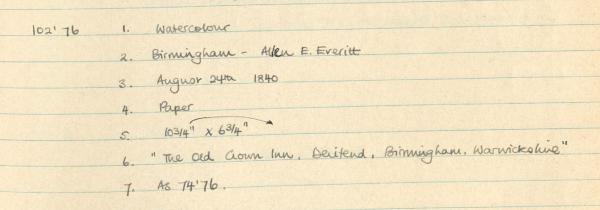 102'76 1. Watercolour
2. Birmingham - Allen E. Everitt
3. August 24th 1840
4. Paper
5. 10 3/4" x 6 3/4"
6. "The Old Crown Inn, Deritend, Birmingham, Warwickshire"
7. As 74'76.